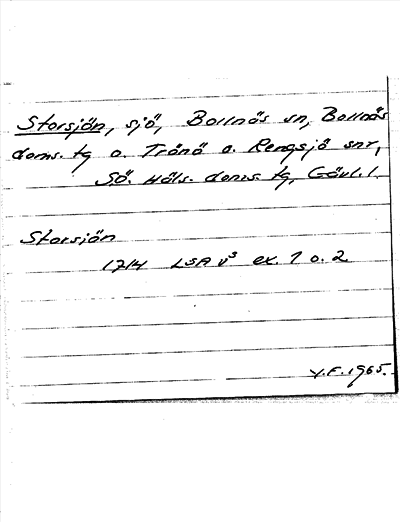 Storsjön, sjö, Bollnäs sn, Bollnäs
doms. tg o. Trönö o. Rengsjö snr,
Sö. Häls. doms. tg, Gävl. l.
Storsjön
1714 LSA v³ ex. 1 o. 2
Y.F. 1965.